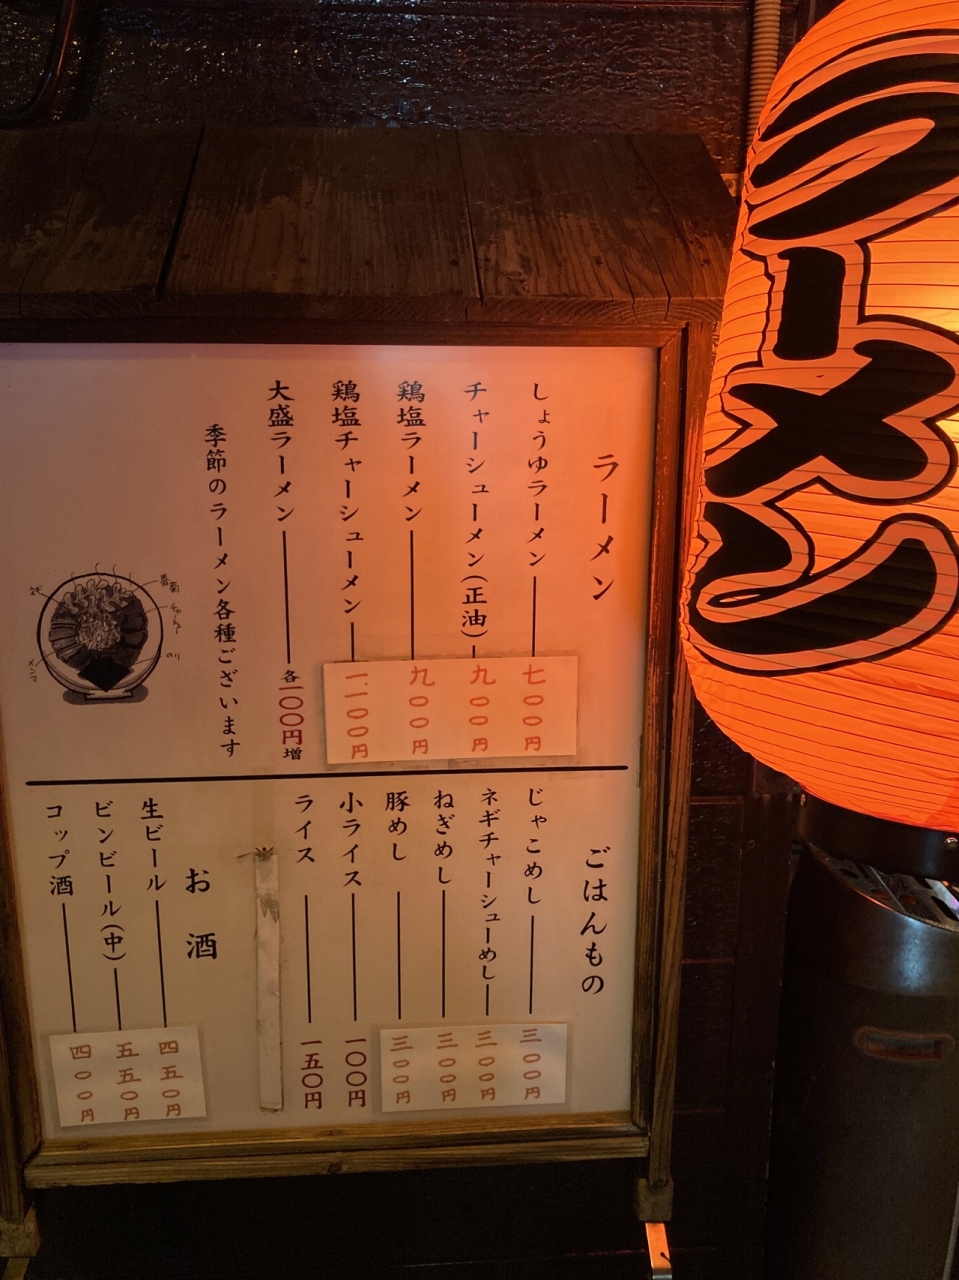 ラーメン
しょうゆラーメン 七〇〇円
チャーシューメン(正油) 九〇〇円
鶏塩ラーメン 九〇〇円
鶏塩チャーシューメン 一、一〇〇円
大盛ラーメン 各一〇〇円増
季節のラーメン各種ございます
チャーシュー
のり
メンマ
ごはんもの
じゃこめし 三〇〇円
ネギチャーシューめし 三〇〇円
ねぎめし 三〇〇円
豚めし 三〇〇円
小ライス 一〇〇円
ライス 一五〇円
お酒
生ビール 四五〇円
ビンビール(中) 五五〇円
コップ酒 四〇〇円
ラーメン